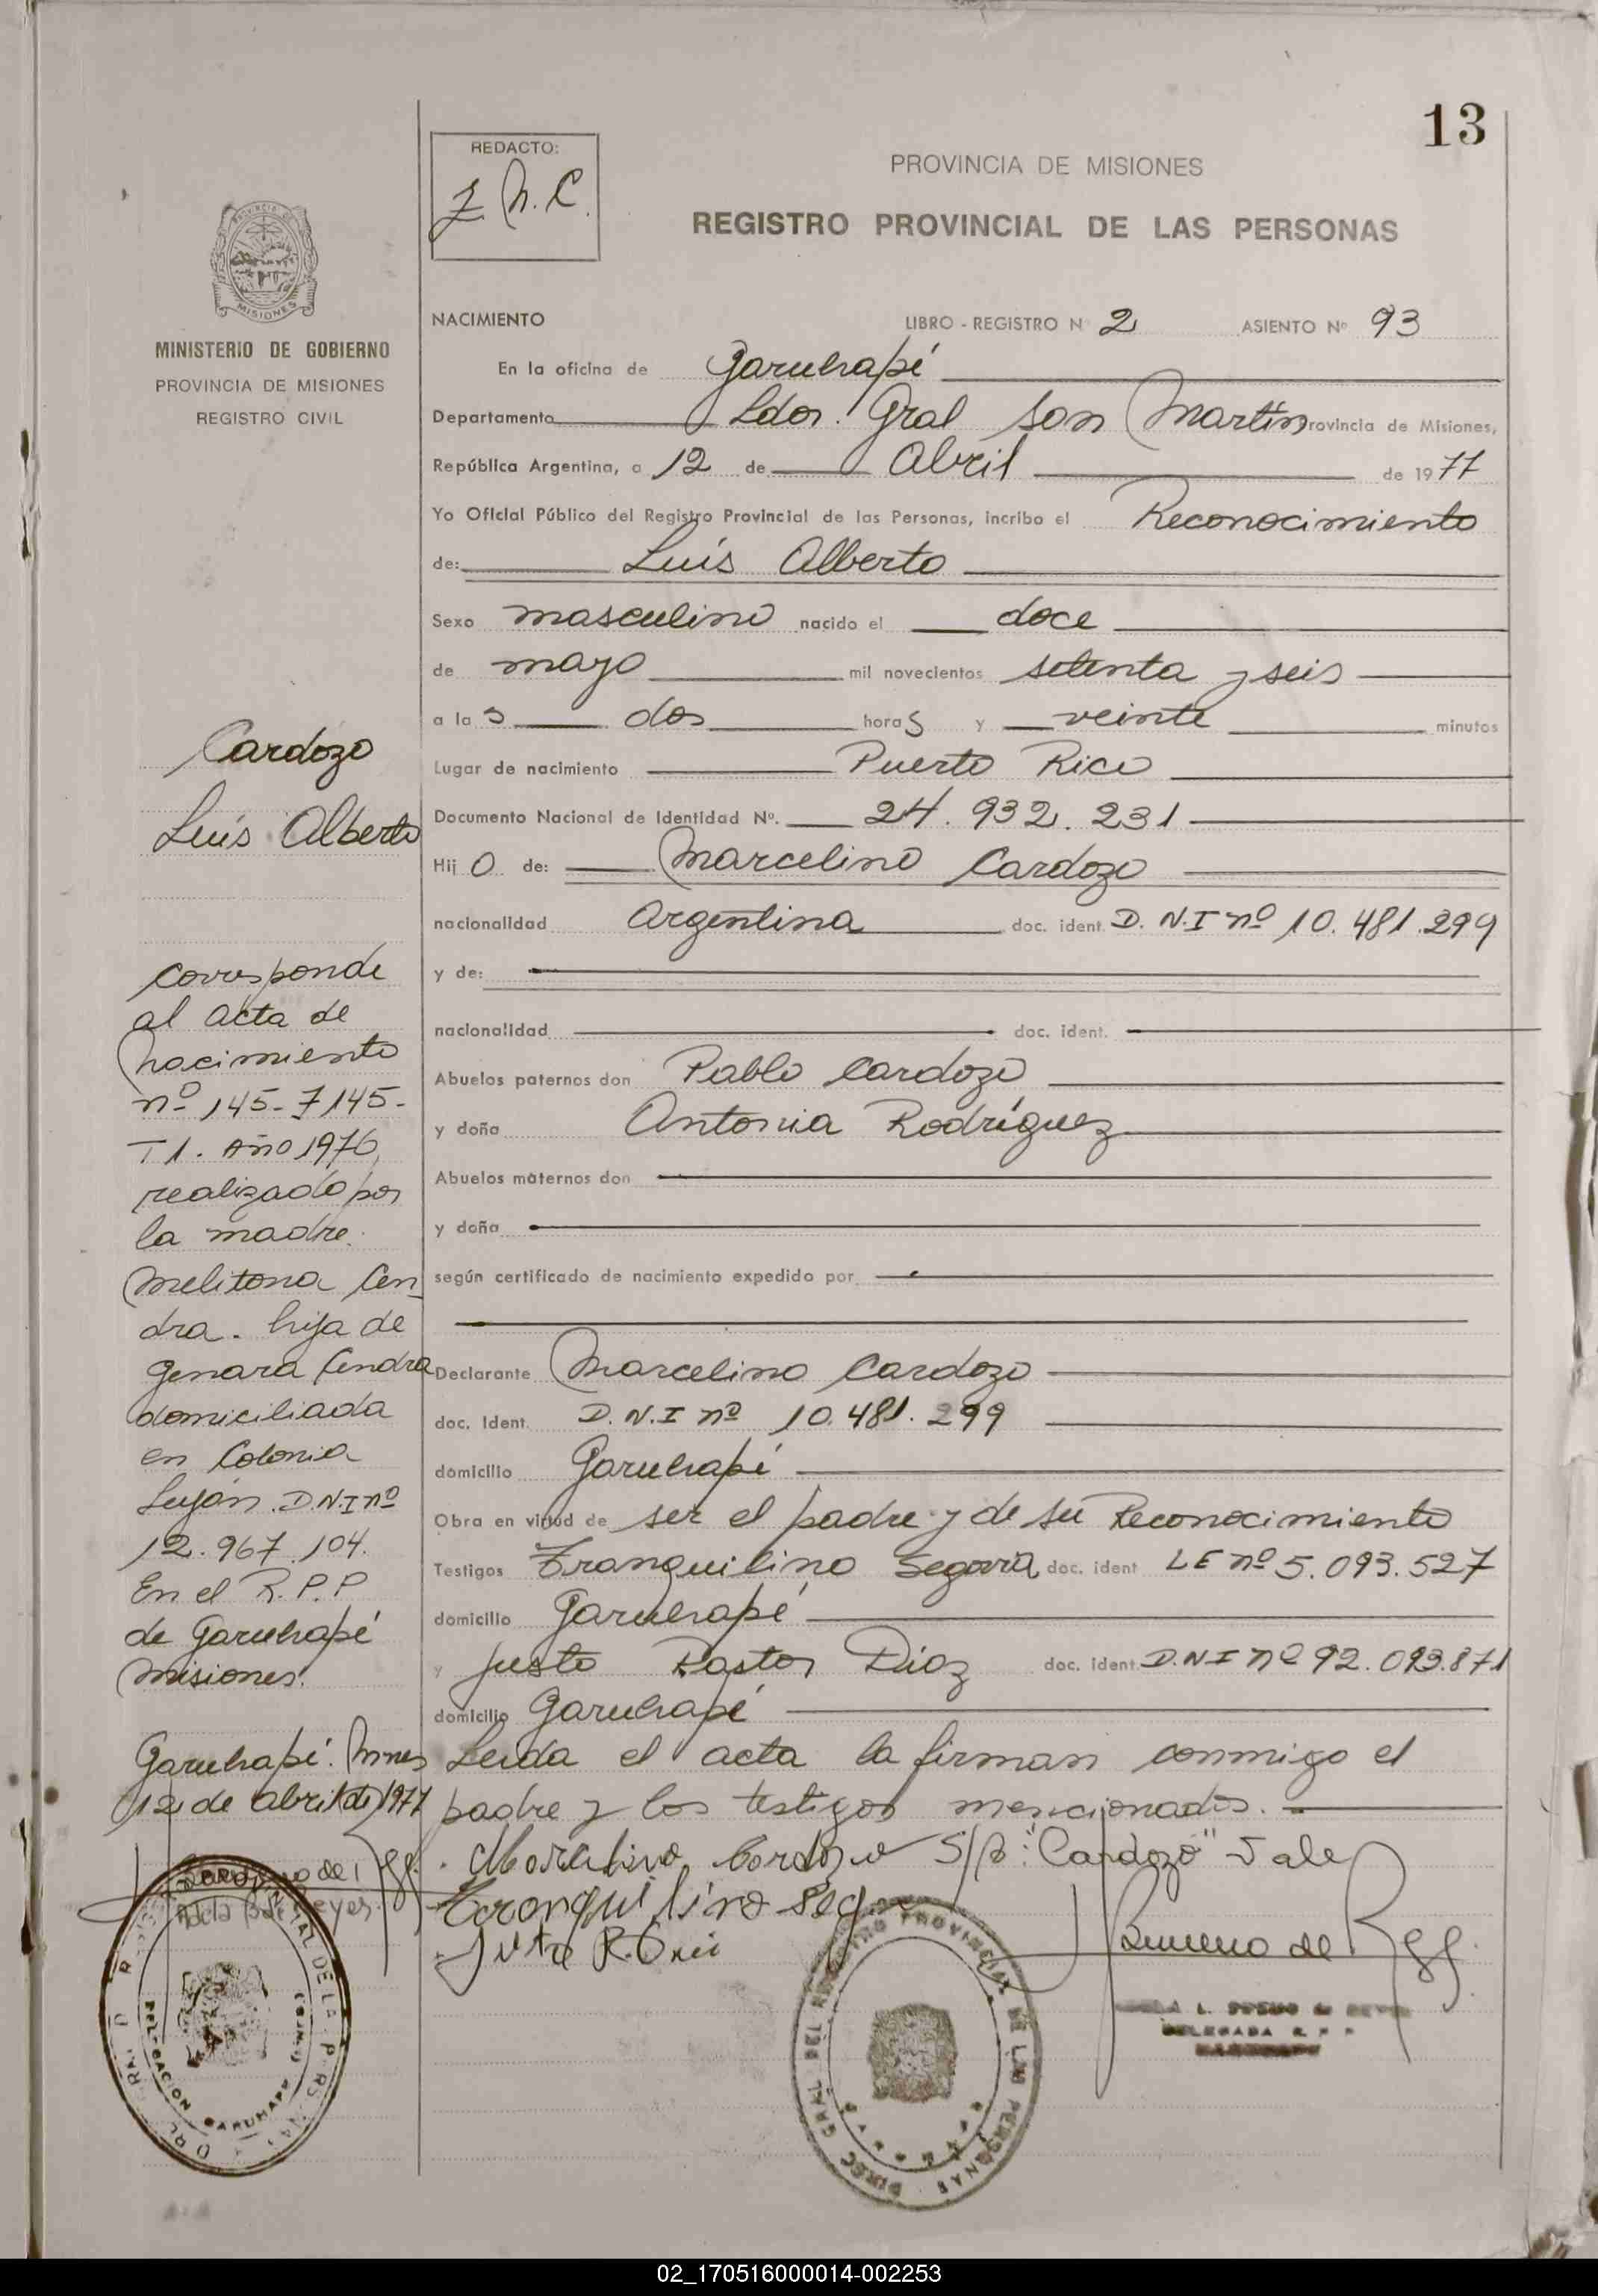 13
REDACTO:
PROVINCIA DE MISIONES
REGISTRO PROVINCIAL DE LAS PERSONAS
MISIONES
MINISTERIO DE GOBIERNO
PROVINCIA DE MISIONES
REGISTRO CIVIL
NACIMIENTO LIBRO - REGISTRO N 2 ASIENTO Nº 93
En la oficina de Garuhapé
Departamento Ldor. Gral San Martín Provincia de Misiones,
República Argentina, a 12 de Abril de 1977
Yo Oficial Público del Registro Provincial de las Personas, incribo el Reconocimiento
de: Luís Alberto
Sexo masculino nacido el doce
de mayo mil novecientos setenta y seis
a la s dos horas y veinte minutos
Lugar de nacimiento Puerto Rico
Documento Nacional de Identidad Nº. 24.932.231
Hij o de: Marcelino Cardozo
nacionalidad Argentina doc. ident. D.N.I nº 10.481.299
y de:
nacionalidad doc. ident.
Abuelos paternos don Pablo Cardozo
y doña Antonia Rodríguez
Abuelos maternos don
y doña
según certificado de nacimiento expedido por
Declarante Marcelino Cardozo
doc. Ident. D.N.I nº 10.481.299
domicilio Garuhapé
Obra en virtud de ser el padre y de su Reconocimiento
Testigos Tranquilino Segovia doc. ident LE nº 5.093.527
domicilio Garuhapé
y Justo Pastor Díaz doc. ident. D.N.I nº 92.093.871
domicilio Garuhapé
Leida el acta la firman conmigo el
padre y los testigos mencionados.
Cardozo
Luís Alberto
corresponde
al acta de
nacimiento
nº 145-F145-
T1. Año 1976,
realizado por
la madre.
Melitona Cen-
dra. hija de
Genara Cendra
domiciliada
en Colonia
Luján. D.N.I nº
12.967.104.
En el R.P.P
de Garuhapé
Misiones.
Garuhapé. Mnes
12 de abril de 1977
Cardozo S/R: "Cardozo" Vale
Tranquilino Seg
DELEGADA R. P. P.
DELEGACION GARUHAPE
02_170516000014-002253